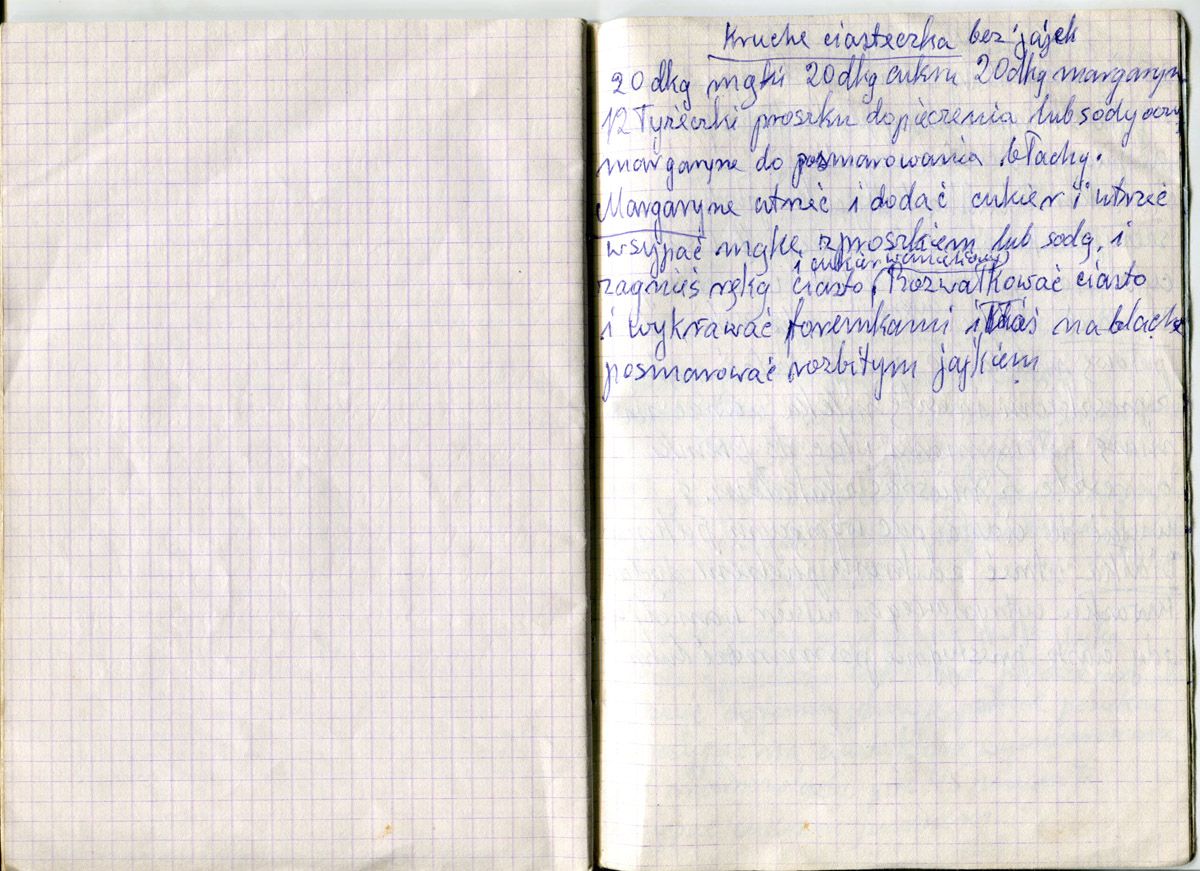 Kruche ciasteczka bez jajek
20 dkg mąki 20 dkg cukru 20 dkg margaryn
1/2 łyżeczki proszku do pieczenia lub sody oczy
margarynę do posmarowania blachy.
Margarynę utrzeć i dodać cukier i utrzeć
wsypać mąkę z proszkiem lub sodą, i
i cukier waniliowy
zagnieś ręką ciasto. Rozwałkować ciasto
i wykrawać foremkami i kłaś na blachę
posmarować rozbitym jajkiem